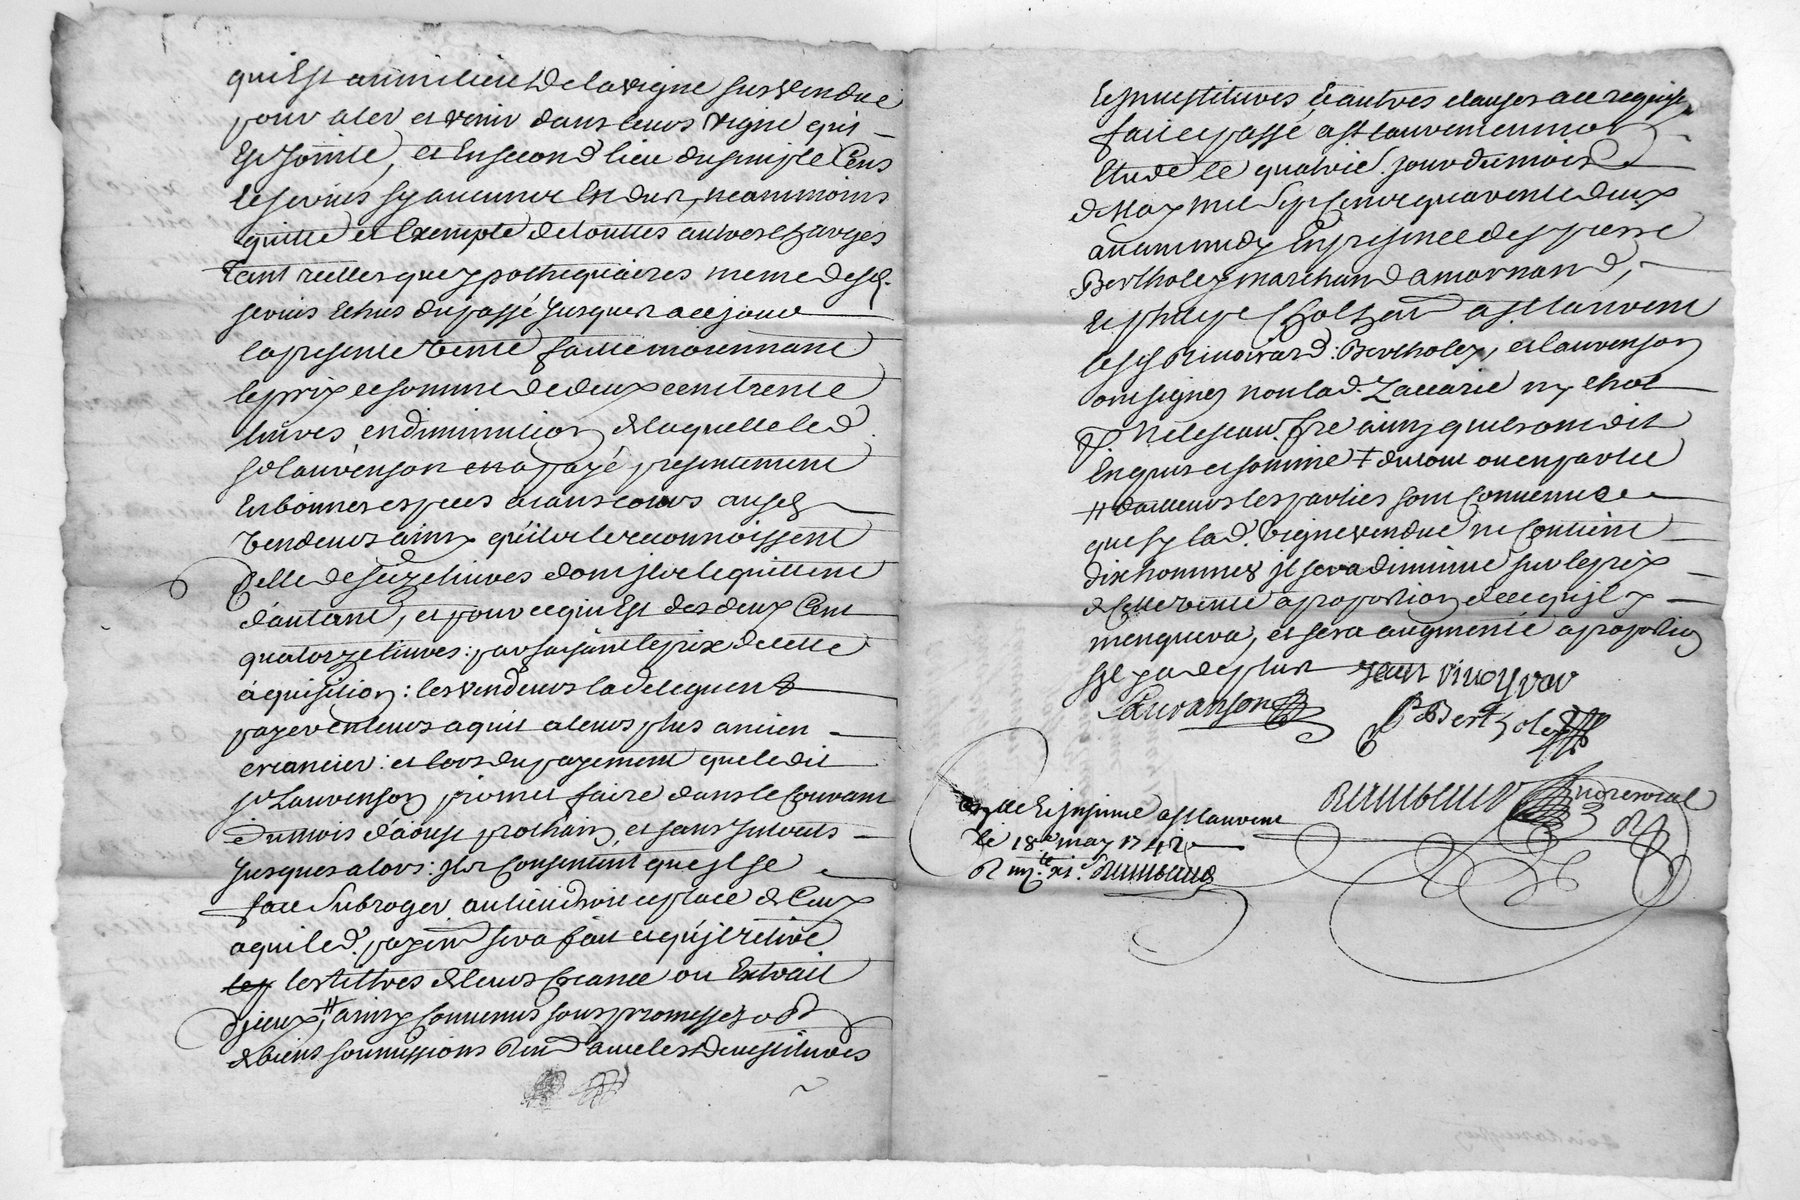 qui Est au milieu de la vigne sus vendue
pour aler et venir dans leurs vigne qui
Est Jointe, et En second lieu du simple Cens
et servis sy aucuns En dus, neammoins
quitte et Exempte de touttes autres charges
tant reelles que ypothequaires meme desd.
servis Echus du passé Jusques a ce jour
la presente vente faitte moiennant
le prix et somme de deux cent trente
livres en diminution de laquelle led.
Sr Lauvenson en a payé presentement
En bonnes especes aiant cours ausd.
vendeurs ainsy qu'ils le reconnoissent
celle de seize livres dont ils le quittent
d'autant, et pour ce qui Est des deux Cent
quatorze livres: parfaisant le prix de cette
aquisition: les vendeurs la deleguent
payer en leurs aquit a leurs plus ancien
creancier: et lors du payement que ledit
Sr Lauvenson promet faire dans le Courant
du mois d'aoust prochain, et sans Interets
Jusques alors: ils Consentent que il se
face subroger au lieu droit et place de Ceux
a qui led. payemt sera fait et qu'il retire
les tittres de leurs Creance ou Extrait
d'jceux, # ainsy Convenus sous promesses obt
de biens soumissions Rend avec les devestitures
Et jnvestitures & autres clauses a ce requises
fait et passé a St Lauvent en mon
Etude le quatrie. jour du mois
de May mil Sept Cent quarente deux
avant midy En presence de sr pierre
Bertholey marchand a mornand,
et philipe a St Lauvent
lesd. Bertholey, et Lauvenson
ont signes non lad. Zacarie ny
ne le scavr. fre ainsy quils ont dit
Enquis et sommé + du tout ou en partie
# d'ailleurs les parties sont Convenue
que sy lad. vigne vendue ne Contient
dix hommes jl sera diminué sur le prix
de cette vente a proportion de ce qu'jl y
menquera, et sera augmenté a proportion
sjl y a de plus Jean
Lauvanson P Bertholey
Rambaud nore royal
Con.lle & jnsinué a St Lauvent
le 18e may 1742
R Rambaud